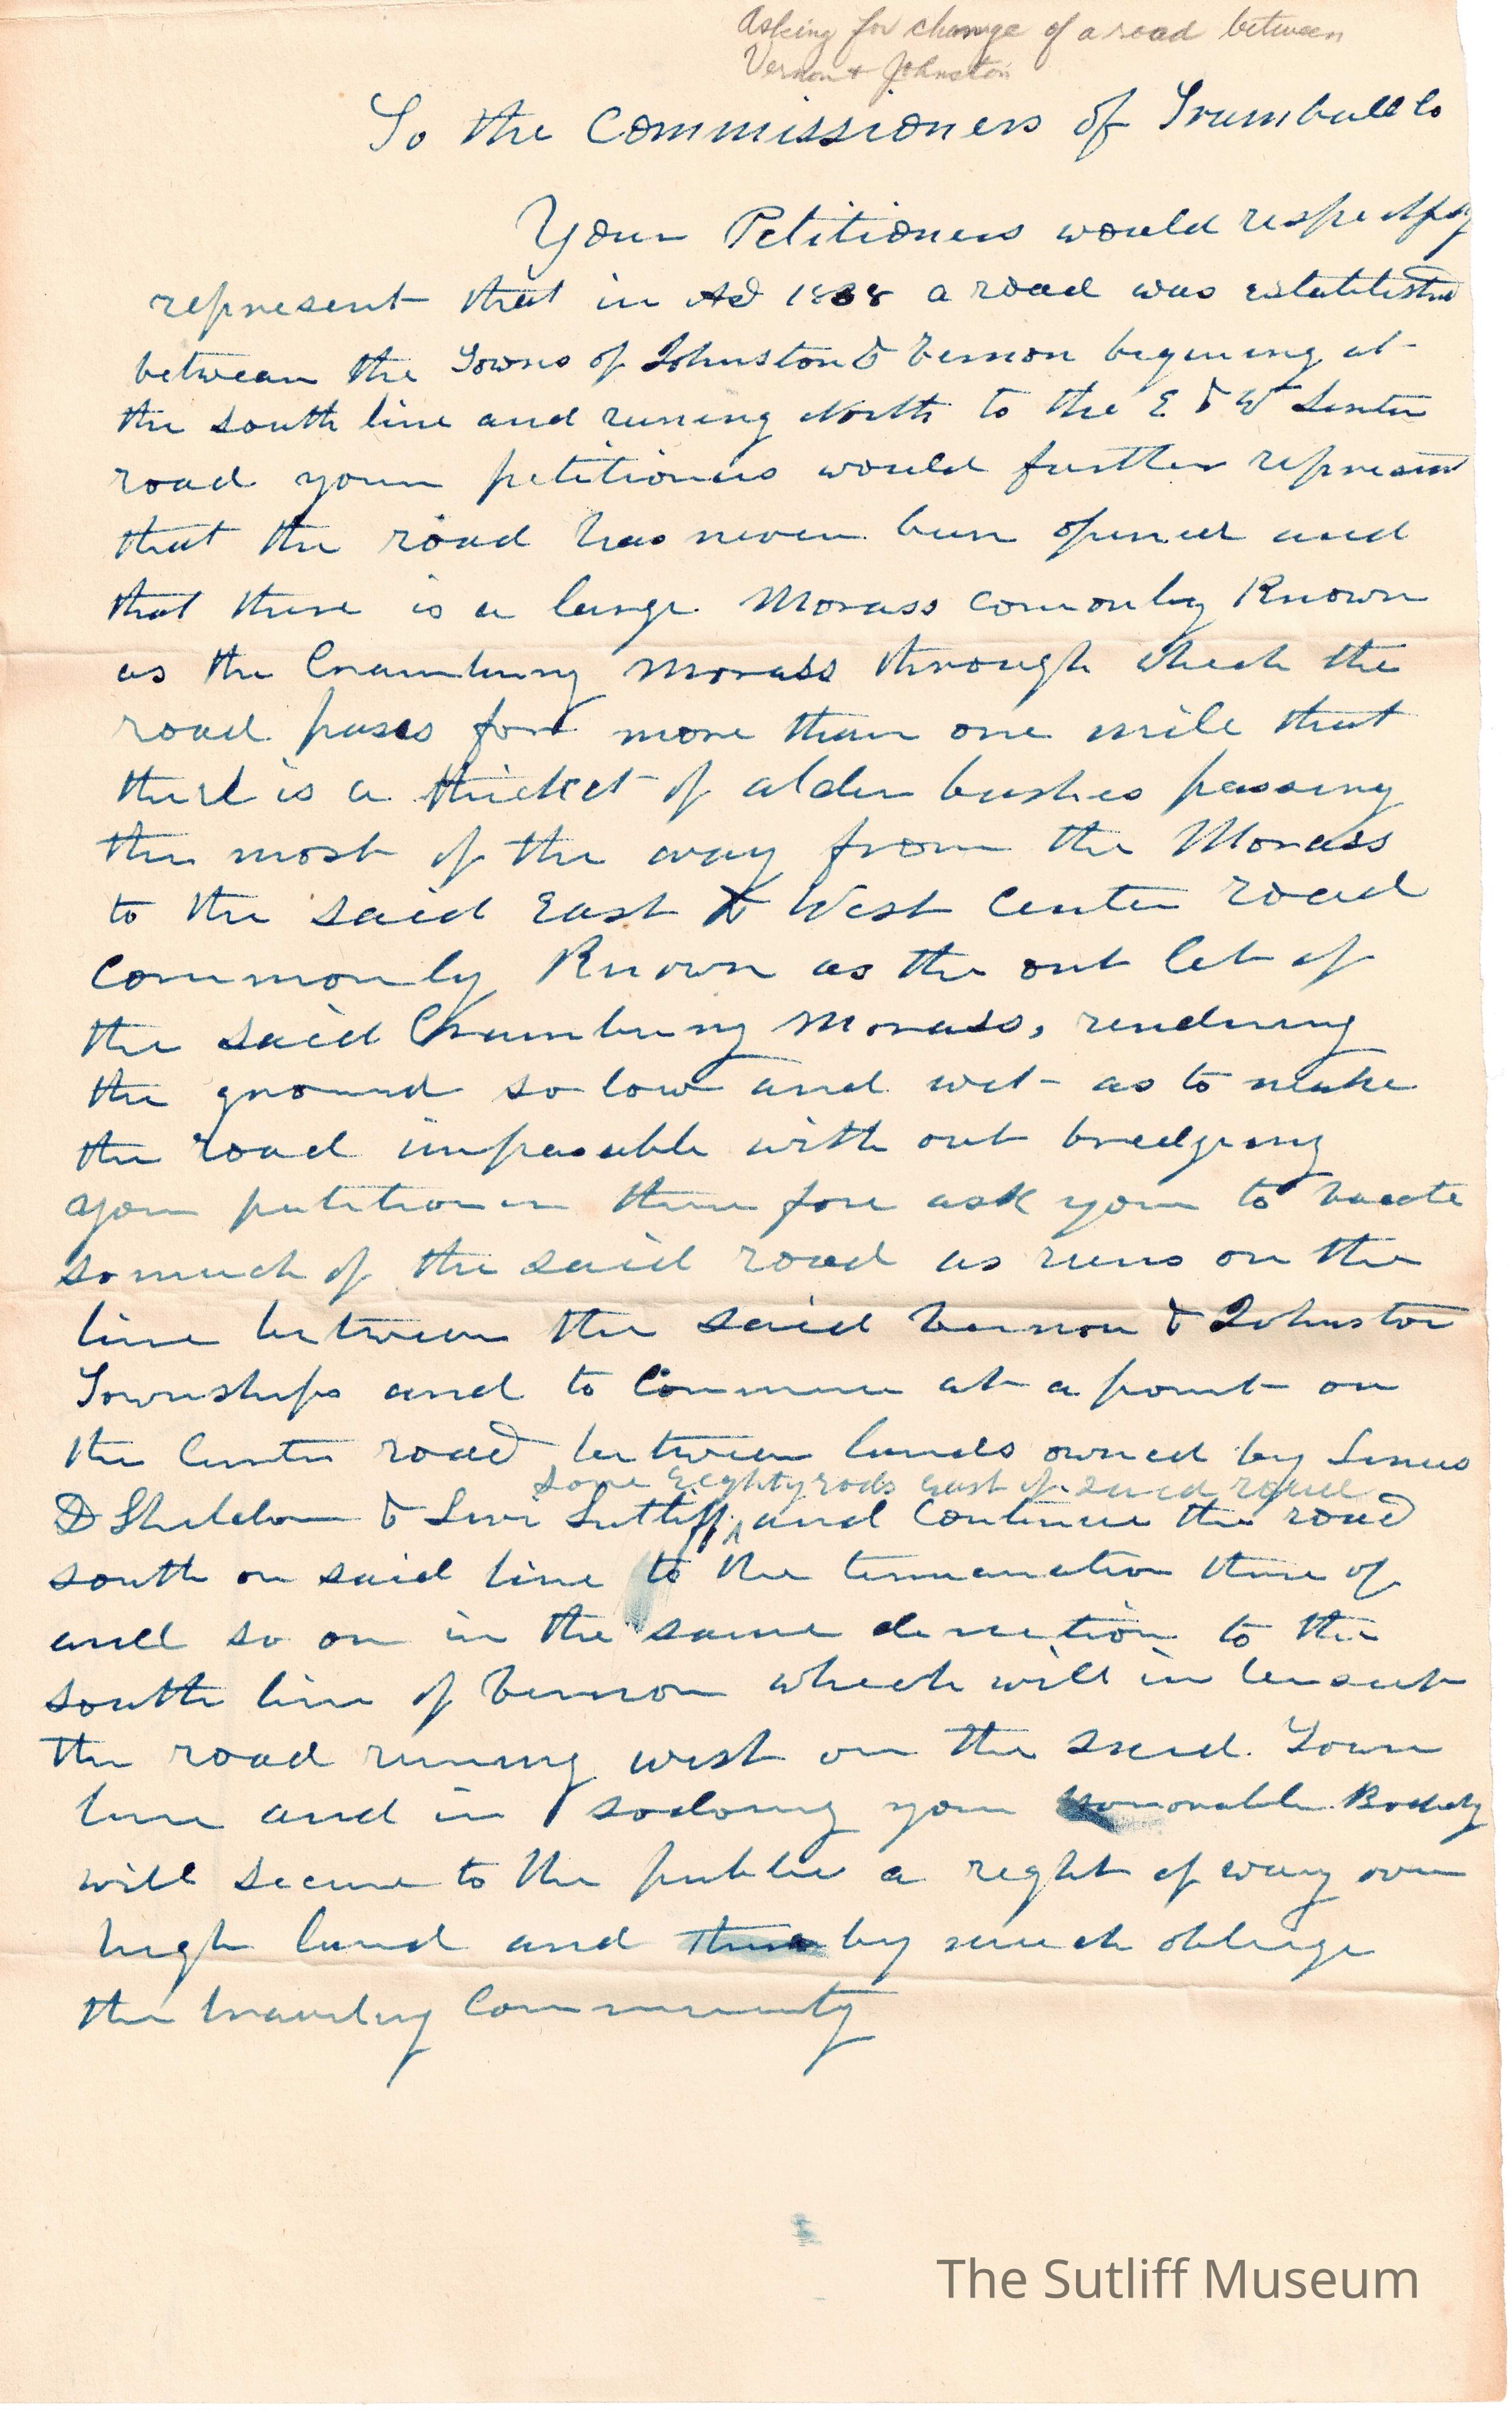 Asking for change of a road between
Vernon & Johnston
To the Commissioners of Trumbull Co
Your Petitioners would
represent that in AD 1838 a road was established
between the Towns of Johnston & Vernon begining at
the south line and runing North to the E & W Senter
road your petitioners would further represent
that the road has never been opened and
that there is a large Morass comonly Known
as the Cramburry Morass through which the
road passes for more than one mile that
there is a thicket of alder bushes passing
the most of the way from the Morass
to the said East & West Center road
Commonly Known as the out let of
the said Cramburry Morass, rendering
the ground so low and wet as to make
the road impasable with out bredging
your petitioners there fore ask you to vacate
so much of the said road as runs on the
line between the said Vernon & Johnston
Townships and to Commence at a point on
the Center road between lands owned by
some Eighty rods east of said road
D Sheldon & Levi Sutliff, and Continue the road
south on said line to the termanation there of
and so on in the same derection to the
south line of Vernon which will in tersect
the road runing west on the said Town
line and in so doing your honorable Body
will secure to the public a right of way over
high land and there by much oblige
the traveling Community
The Sutliff Museum